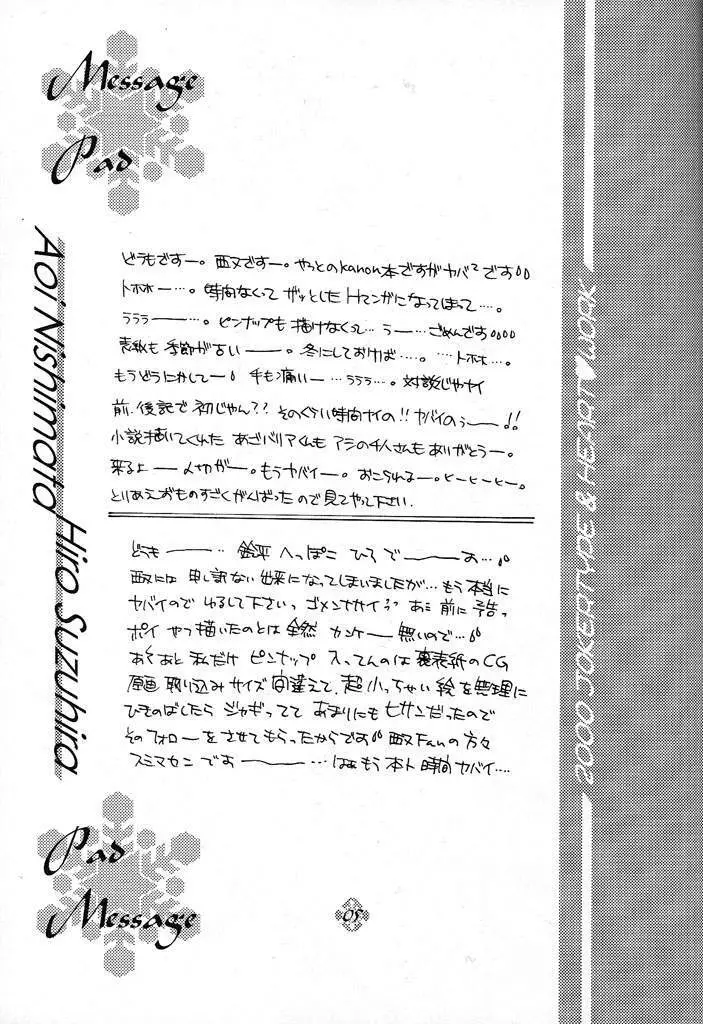 Message
Pad
Aoi Nishimata
どうもですー。西又ですー。やっとのkanon本ですがヤバ²です
トホホー…。時間なくってザッとしたHマンガになってしまって…。
ラララー――…。ピンナップも描けなくって…うー…ごめんです
表紙も季節が古い――。冬にしておけば…。…トホホ…。
もうどうにかしてー 手も痛いー…ラララ…。対談じゃナイ
前.後記で初じゃん?? そのぐらい時間ナイの!! ヤバイのぅ――!!
小説描いてくれたあざバリアくんもアシの4人さんもありがとうー。
来るよ――人切がー。もうヤバイー。おこられるー。ヒーヒーヒー。
とりあえずものすごくがんばったので見てやって下さい.
Hiro Suzuhira
どうも――… 鈴平 へっぽこ ひろ で――す…
西又には 申し訳ない出来になってしまいましたが…もう本当に
ヤバイので ゆるして下さいっ ゴメンナサイ あと前に予告っ
ポイ やつ描いたのとは全然 カンケー無いので…
あとあと私だけ ピンナップ 入ってんのは裏表紙のCG
原画取り込みサイズ間違えて、超小っちゃい絵を無理に
ひきのばしたら ジャギってて あまりにもヒサンだったので
そのフォローをさせてもらったからです 西又Fanの方々
スミマセン です――…はぁもう本ト時間ヤバイ…
Pad
Message
05
2000 JOKERTYPE & HEART♥WORK